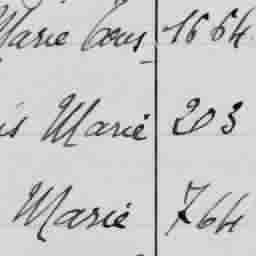 Marie Cous 1664
is Marie 203
Marie 764